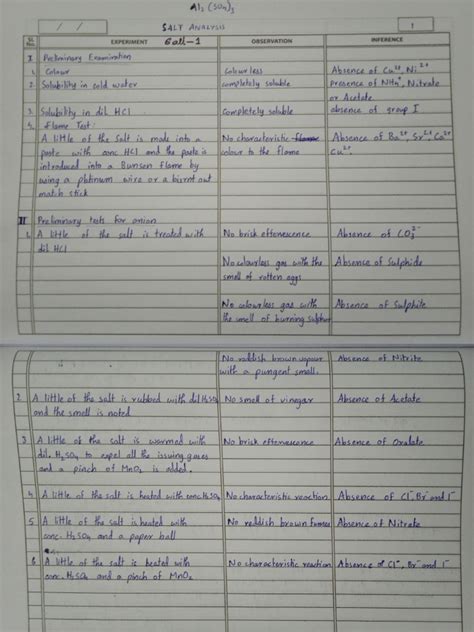 Al₂(SO₄)₃
SALT ANALYSIS
1
SL No.
EXPERIMENT Salt-1
OBSERVATION
INFERENCE
I Preliminary Examination
1. Colour
Colourless
Absence of Cu²⁺, Ni²⁺
2. Solubility in cold water
completely soluble
Presence of NH₄⁺, Nitrate
or Acetate.
3. Solubility in dil HCl
Completely soluble
absence of group I
4. Flame Test:
A little of the Salt is made into a
No characteristic
Absence of Ba²⁺, Sr²⁺, Ca²⁺
paste with conc HCl and the paste is
colour to the flame
Cu²⁺.
introduced into a Bunsen flame by
using a platinum wire or a burnt out
match stick
II Preliminary tests for anion
1. A little of the salt is treated with
No brisk effervescence
Absence of CO₃²⁻
dil HCl
No colourless gas with the
Absence of Sulphide
smell of rotten eggs
No colourless gas with
Absence of Sulphite
the smell of burning sulphur
No reddish brown vapour
Absence of Nitrite
with a pungent smell.
2. A little of the salt is rubbed with dil H₂SO₄
No smell of vinegar
Absence of Acetate
and the smell is noted
3 A little of the salt is warmed with
No brisk effervescence
Absence of Oxalate
dil. H₂SO₄ to expel all the issuing gases
and a pinch of MnO₂ is added.
4 A little of the salt is heated with conc. H₂SO₄
No characteristic reaction
Absence of Cl⁻, Br⁻ and I⁻
5 A little of the salt is heated with
No reddish brown fumes
Absence of Nitrate
conc. H₂SO₄ and a paper ball
6. A little of the salt is heated with
No characteristic reaction
Absence of Cl⁻, Br⁻ and I⁻
conc. H₂SO₄ and a pinch of MnO₂